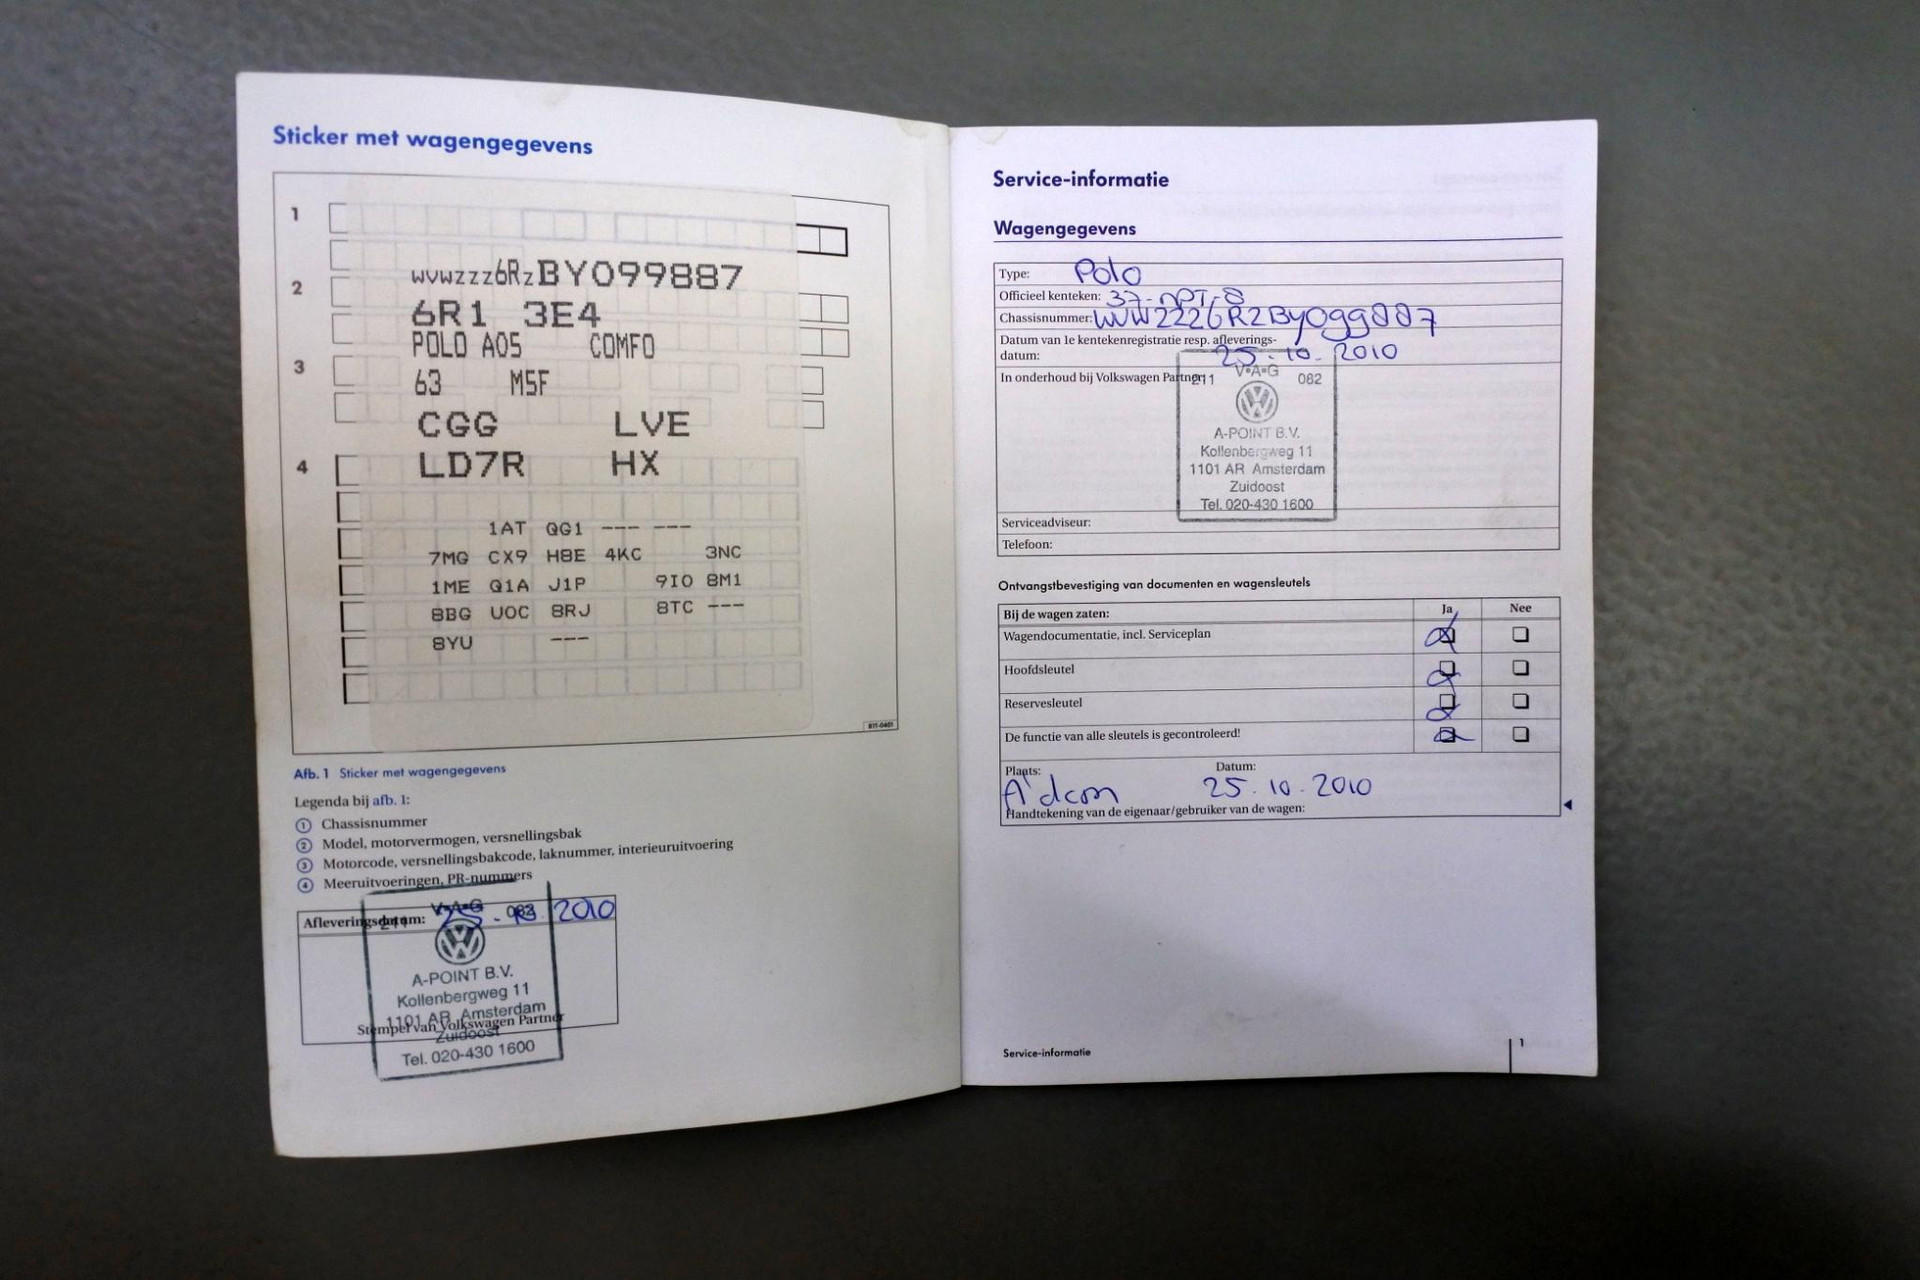 Sticker met wagengegevens
1
WVWZZZ6RZBY099887
2
6R1 3E4
POLO A05 COMFO
3
63 M5F
CGG LVE
4
LD7R HX
1AT QG1 --- ---
7MG CX9 H8E 4KC 3NC
1ME Q1A J1P 9IO 8M1
8BG UOC 8RJ 8TC ---
8YU ---
B11-0401
Afb. 1 Sticker met wagengegevens
Legenda bij afb. 1:
1 Chassisnummer
2 Model, motorvermogen, versnellingsbak
3 Motorcode, versnellingsbakcode, laknummer, interieuruitvoering
4 Meeruitvoeringen, PR-nummers
Afleveringsdatum: 25.10.2010
211 V•A•G 082
A-POINT B.V.
Kollenbergweg 11
1101 AR Amsterdam
Stempel van Volkswagen Partner
Zuidoost
Tel. 020-430 1600
Service-informatie
Wagengegevens
Type: Polo
Officieel kenteken: 37-NPT-8
Chassisnummer: WVWZZZ6RZBY099887
Datum van 1e kentekenregistratie resp. afleverings-
datum: 25.10.2010
In onderhoud bij Volkswagen Partner:
211 V•A•G 082
A-POINT B.V.
Kollenbergweg 11
1101 AR Amsterdam
Zuidoost
Tel. 020-430 1600
Serviceadviseur:
Telefoon:
Ontvangstbevestiging van documenten en wagensleutels
Bij de wagen zaten: Ja Nee
Wagendocumentatie, incl. Serviceplan
Hoofdsleutel
Reservesleutel
De functie van alle sleutels is gecontroleerd!
Plaats: Datum:
A'dam 25.10.2010
Handtekening van de eigenaar/gebruiker van de wagen:
Service-informatie 1